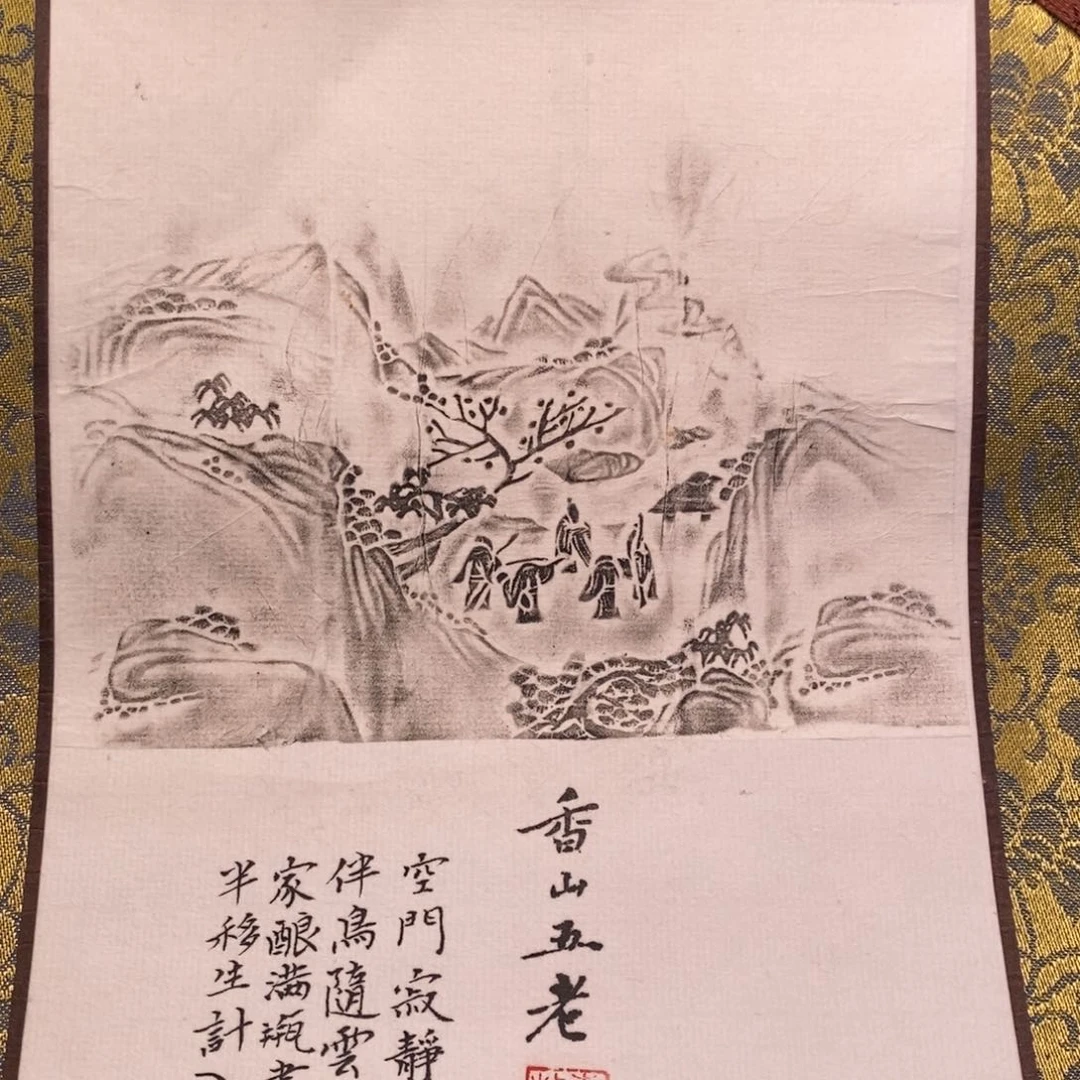 香山五老
空門寂靜
伴鳥隨雲
家酿满瓶
半移生計